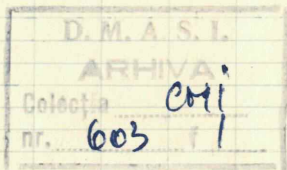 D. M. A. S. I.
ARHIVA
Colecția CMI
nr. 603 f 1